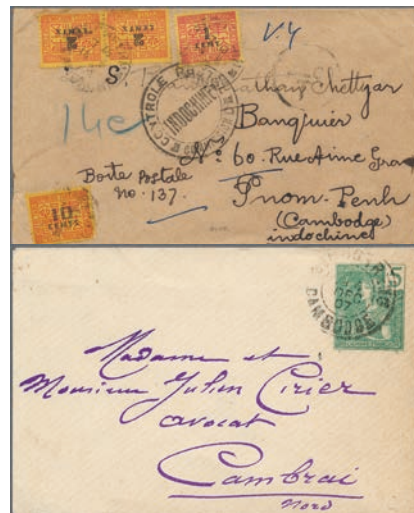 2
CENTS
2
CENTS
1
CENT
V.4
S
14c
CONTROLE
INDOCHINE
Chettyar
Banquier
No: 60. Rue Aime
Boite Postale
no. 137.
Pnom-Penh
(Cambodge)
indochine
10
CENTS
5
DEC
CAMBODGE
Madame et
Monsieur Julien Cirier
avocat
Cambrai
Nord